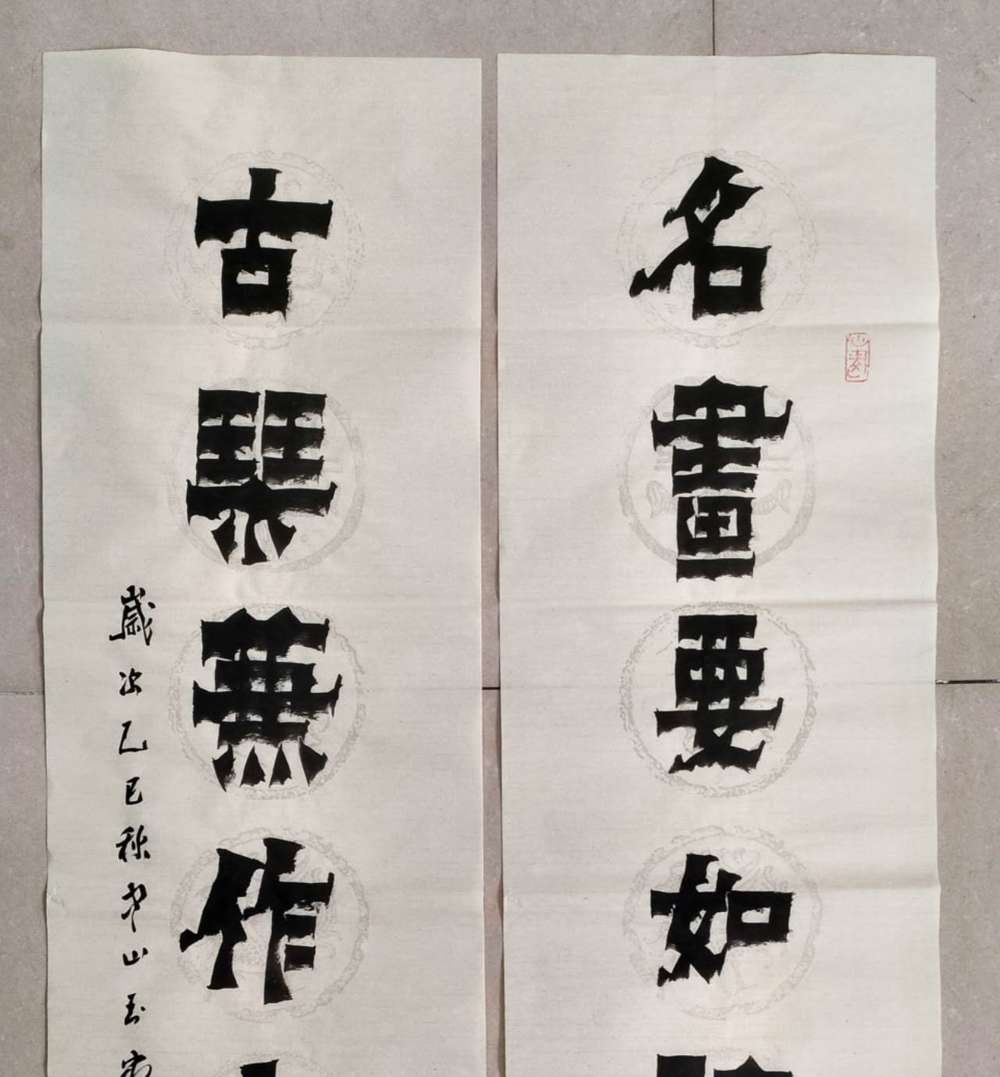 名畫要如
古琴兼作
歲次乙巳秋
山玉